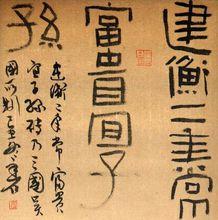 建衡二年常
富貴宜子
孫
建衡二年常富貴
宜子孫磚乃三國吳
國所制